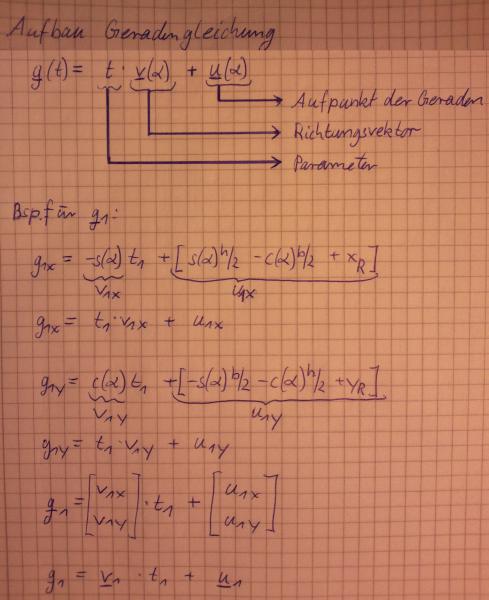 Aufbau Geradengleichung
g(t) = t · v(α) + u(α)
Aufpunkt der Geraden
Richtungsvektor
Parameter
Bsp. für g1:
g1x = -s(α) t1 + [ s(α) h/2 - c(α) b/2 + xR ]
v1x u1x
g1x = t1 · v1x + u1x
g1y = c(α) t1 + [ -s(α) b/2 - c(α) h/2 + yR ]
v1y u1y
g1y = t1 · v1y + u1y
g1 = [ v1x v1y ] · t1 + [ u1x u1y ]
g1 = v1 · t1 + u1